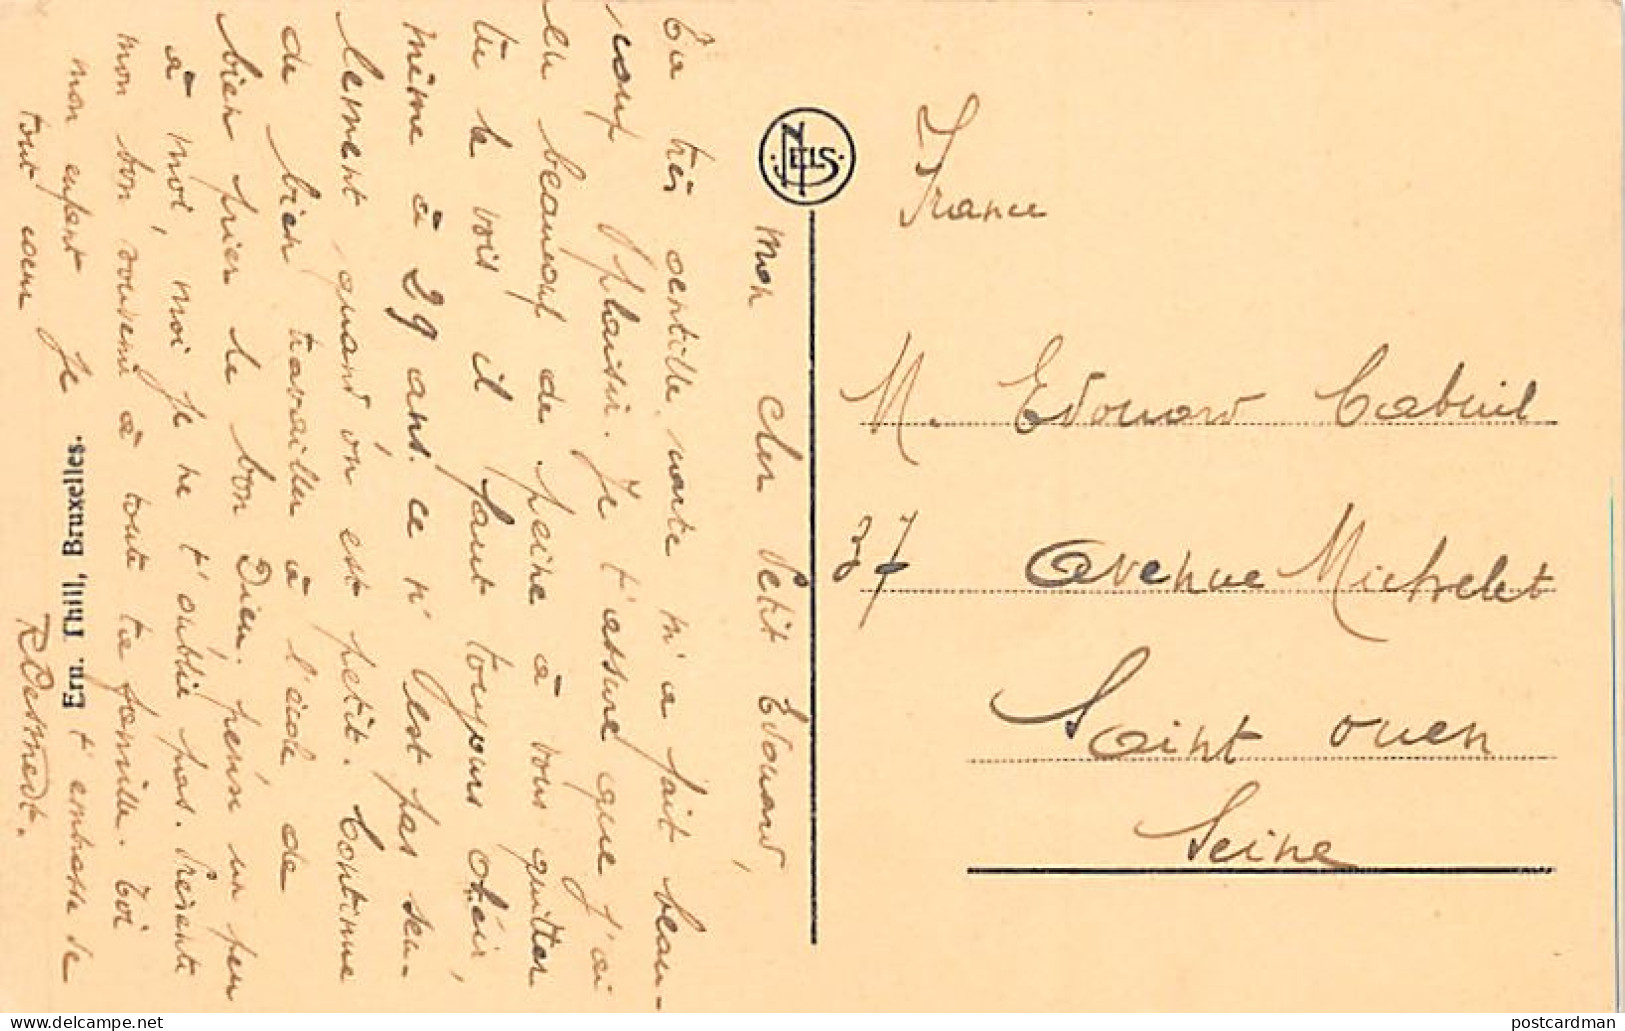 Mon cher Petit Edouard,
Ta très gentille carte m'a fait beau-
coup plaisir. Je t'assure que j'ai
eu beaucoup de peine à vous quitter
tu le vois il faut toujours obéir,
même à 29 ans. ce n'est pas seu-
lement quand on est petit. Continue
de bien travailler à l'école de
bien prier le bon Dieu. pense un peu
à moi, moi je ne t'oublie pas. Présente
mon bon souvenir à toute ta famille. Toi
mon enfant je t'embrasse de
tout cœur
R Desmedt.
Ern. Thill, Bruxelles.
NELS
France
M. Edouard Cabuil
37 avenue Michelet
Saint ouen
Seine
delcampe.net
postcardman